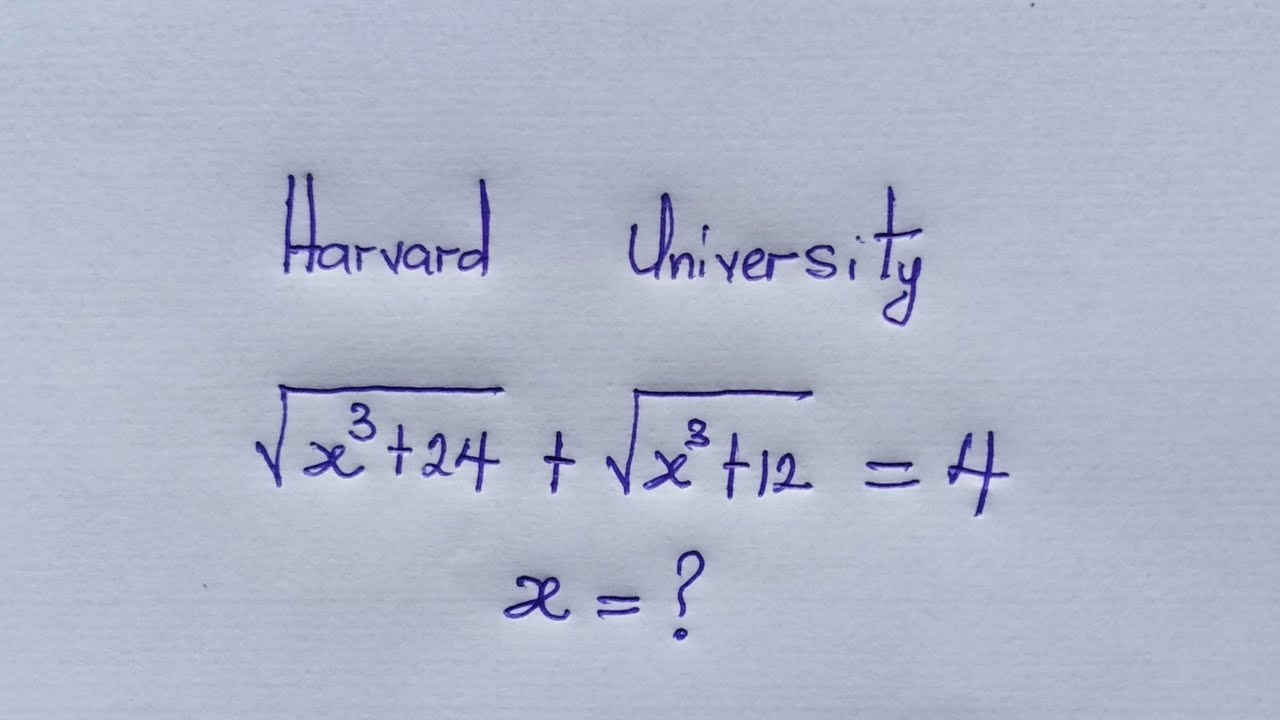 Harvard University
√(x³+24) + √(x³+12) = 4
x = ?